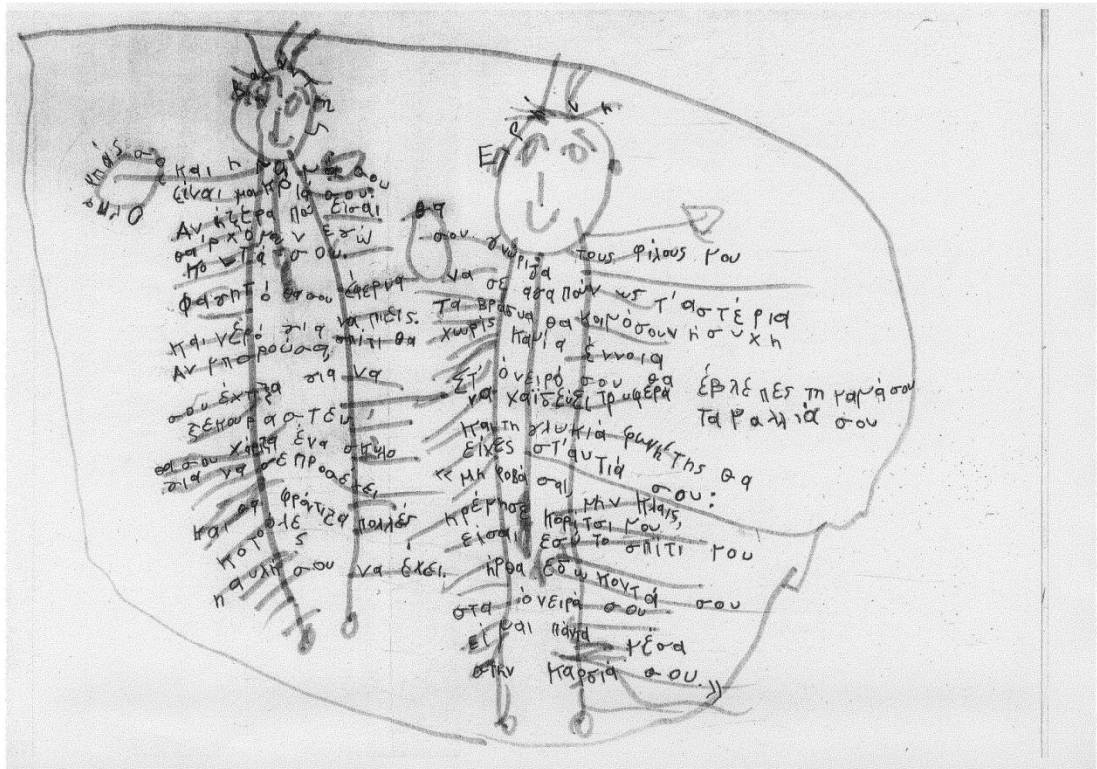 και η μαμά σου
είναι μακριά σου;
Αν ήξερα πού είσαι
θα ερχόμουν εγώ
κοντά σου.
Φαγητό θα σου έφερνα
και νερό για να πιείς.
Αν μπορούσα, σπίτι θα
σου έχτιζα για να
ξεκουραστείς.
θα σου χάριζα ένα σκύλο
για να σε προσέχει
και θα φρόντιζα πολλές
κότες
η αυλή σου να έχει.
Ειρήνη
θα
σου γνώριζα τους φίλους μου
να σε αγαπούν ως τ' αστέρια
Τα βράδυα θα κοιμόσουν ήσυχη
χωρίς καμία έννοια
Στ' όνειρό σου θα έβλεπες τη μαμά σου
να χαϊδεύει τρυφερά τα μαλλιά σου
και τη γλυκιά φωνή της θα
είχες στ' αυτιά σου:
«Μη φοβάσαι, μην κλαις,
ηρέμησε κορίτσι μου,
είσαι εσύ το σπίτι μου
ήρθα εδώ κοντά σου
στα όνειρά σου
είμαι πάντα μέσα
στην καρδιά σου.»